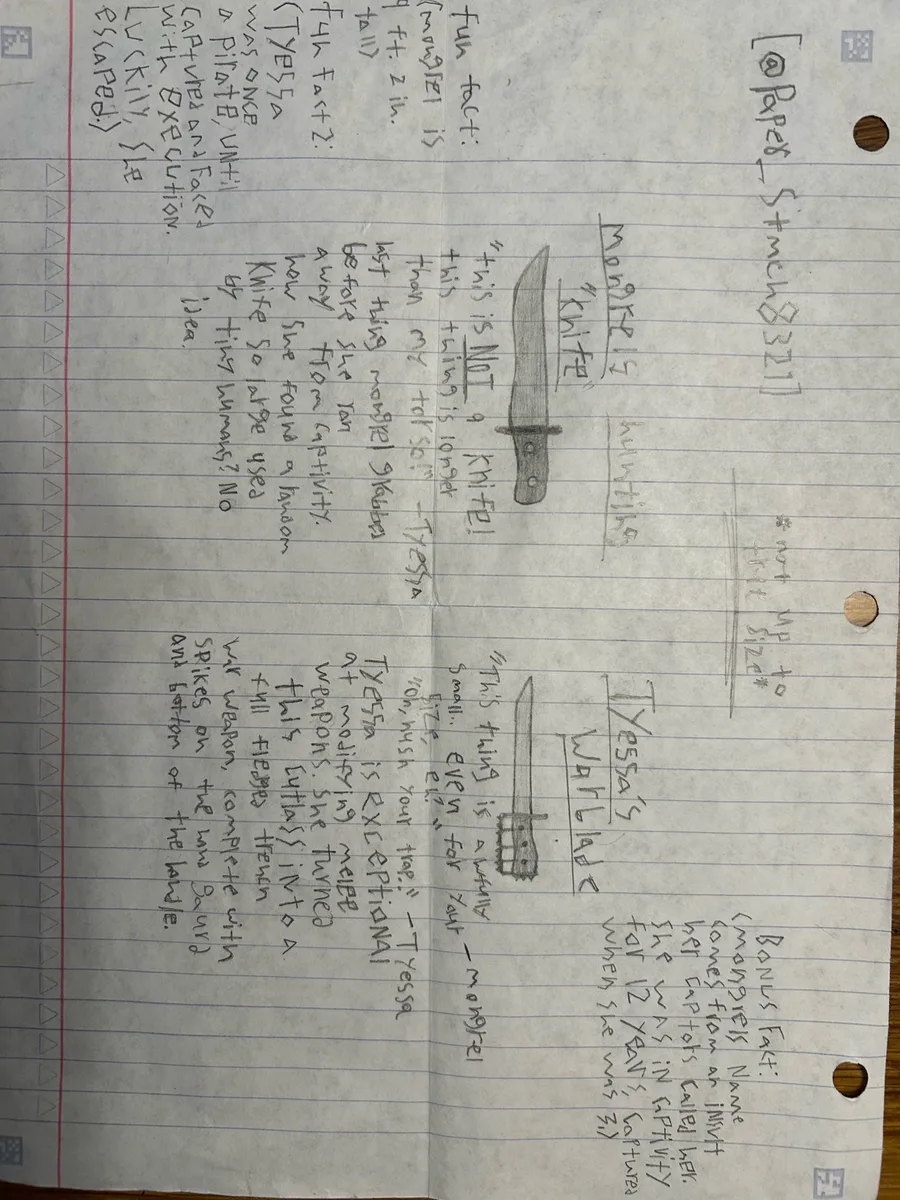 [@Paper_Stmench8321]
*not up to
true size*
mongrels hunting
"knife"
"this is NOT a knife!
this thing is longer
than my torso!" -Tyessa
last thing mongrel grabbed
before she ran
away from captivity.
how she found a random
knife so large used
by tiny humans? No
idea.
Tyessa's
Warblade
"This thing is awfully
small.. even for your
size, eh?" -mongrel
"Oh, hush your trap." -Tyessa
Tyessa is exceptional
at modifying melee
weapons. She turned
this cutlass into a
full fledged trench
war weapon, complete with
spikes on the hand gaurd
and bottom of the handle.
Bonus Fact:
(mongrels Name
comes from an insult
her captors called her.
She was in captivity
for 12 years, captured
when she was 3.)
fun fact:
(mongrel is
9 ft. 2 in.
tall)
fun fact 2:
(Tyessa
was once
a pirate, until
captured and faced
with execution.
Luckily, she
escaped.)